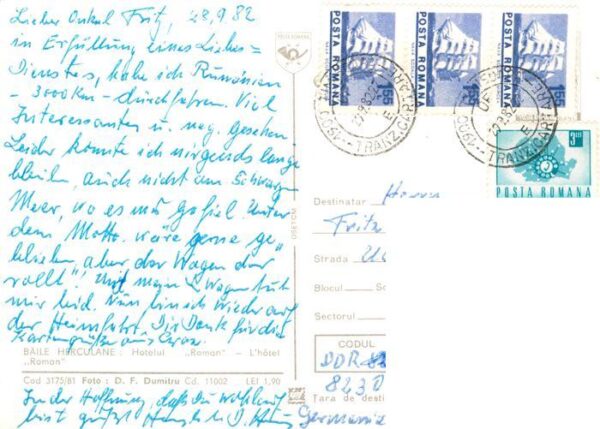 Lieber Onkel Fritz, 28.9.82
in Erfüllung eines Liebes=
Dienstes, habe ich Rumänien
- 3000 km - durchfahren. Viel
Interessantes u. gesehen
Leider konnte ich nirgends lange
bleiben, auch nicht am Schwarzen
Meer, wo es mir gefiel. Unter
dem Motto: wäre gerne ge„
blieben, aber der Wagen der
rollt". Und mein Wagen tut
mir leid. Nun bin ich wieder auf
der Heimfahrt. Dir Dank für die
Kartengrüße aus
BĂILE HERCULANE: Hotelul „Roman" — L'hôtel
„Roman"
Cod 3175/81 Foto: D. F. Dumitru Cd. 11002 LEI 1,90
In der Hoffnung, daß Du wohlauf
bist grüßt
POSTA ROMANA
1,55
POSTA ROMANA
POSTA ROMANA
1,55
TRANZI CART
TRANZI CART
POSTA ROMANA
Destinatar Herrn
Fritz
Strada
Blocul Sc
Sectorul
CODUL
DDR
8230
Țara de desti
Germania